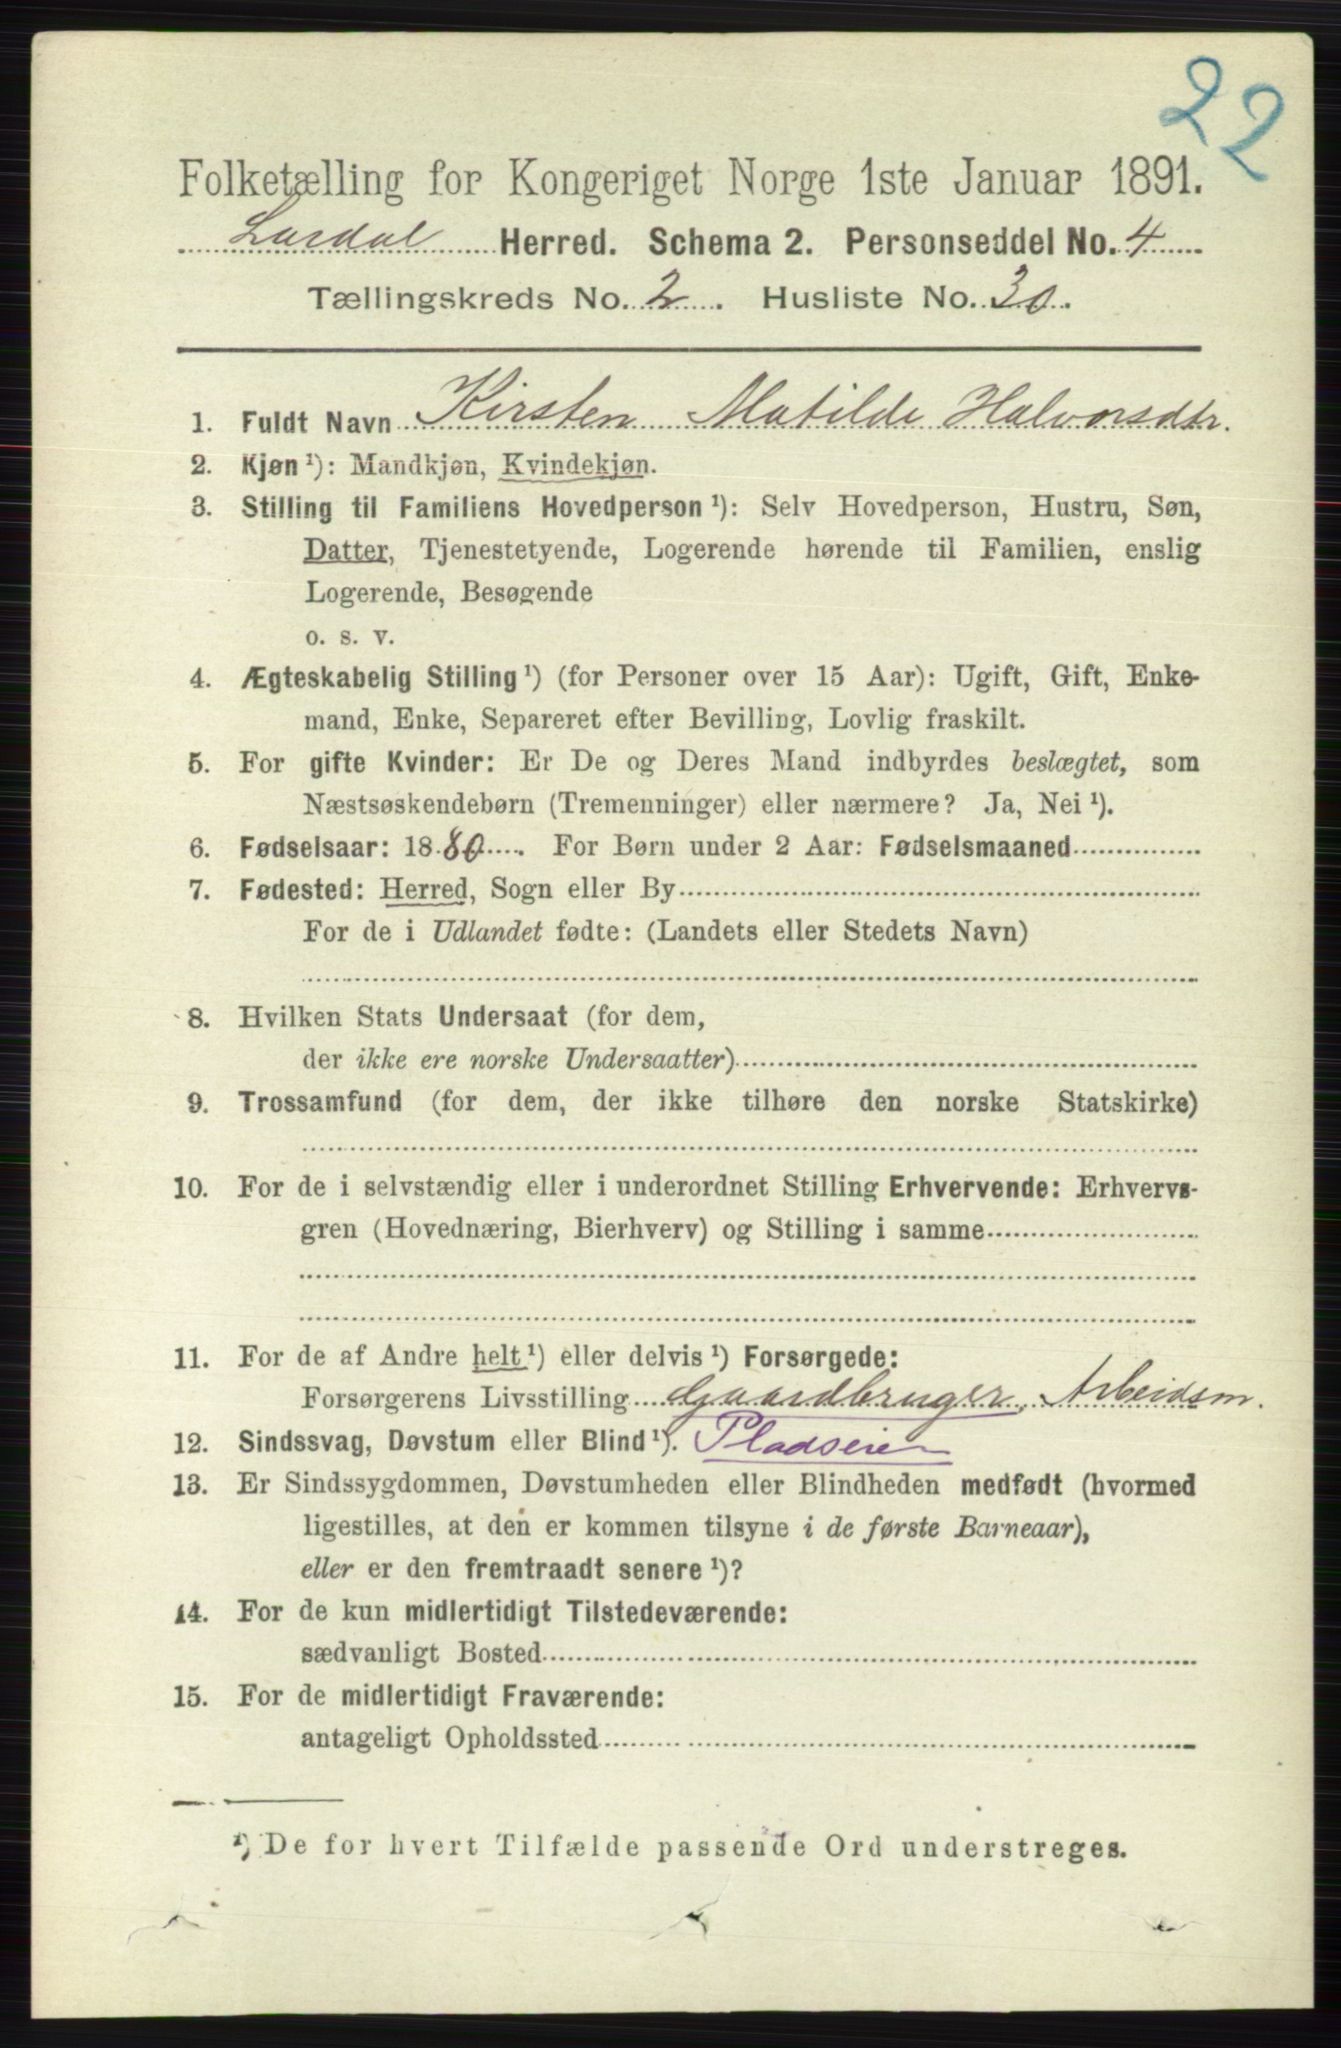 22
Folketælling for Kongeriget Norge 1ste Januar 1891.
Lardal Herred. Schema 2. Personseddel No. 4
Tællingskreds No. 2. Husliste No. 30.
1. Fuldt Navn Kirsten Matilde Halvorsdtr.
2. Kjøn ¹): Mandkjøn, Kvindekjøn.
3. Stilling til Familiens Hovedperson ¹): Selv Hovedperson, Hustru, Søn,
Datter, Tjenestetyende, Logerende hørende til Familien, enslig
Logerende, Besøgende
o. s. v.
4. Ægteskabelig Stilling ¹) (for Personer over 15 Aar): Ugift, Gift, Enke-
mand, Enke, Separeret efter Bevilling, Lovlig fraskilt.
5. For gifte Kvinder: Er De og Deres Mand indbyrdes beslægtet, som
Næstsøskendebørn (Tremenninger) eller nærmere? Ja, Nei ¹).
6. Fødselsaar: 1880. For Børn under 2 Aar: Fødselsmaaned
7. Fødested: Herred, Sogn eller By
For de i Udlandet fødte: (Landets eller Stedets Navn)
8. Hvilken Stats Undersaat (for dem,
der ikke ere norske Undersaatter)
9. Trossamfund (for dem, der ikke tilhøre den norske Statskirke)
10. For de i selvstændig eller i underordnet Stilling Erhvervende: Erhvervs-
gren (Hovednæring, Bierhverv) og Stilling i samme
11. For de af Andre helt ¹) eller delvis ¹) Forsørgede:
Forsørgerens Livsstilling Gaardbruger, Arbeidsm.
12. Sindssvag, Døvstum eller Blind ¹). Pladseier
13. Er Sindssygdommen, Døvstumheden eller Blindheden medfødt (hvormed
ligestilles, at den er kommen tilsyne i de første Barneaar),
eller er den fremtraadt senere ¹)?
14. For de kun midlertidigt Tilstedeværende:
sædvanligt Bosted
15. For de midlertidigt Fraværende:
antageligt Opholdssted
¹) De for hvert Tilfælde passende Ord understreges.